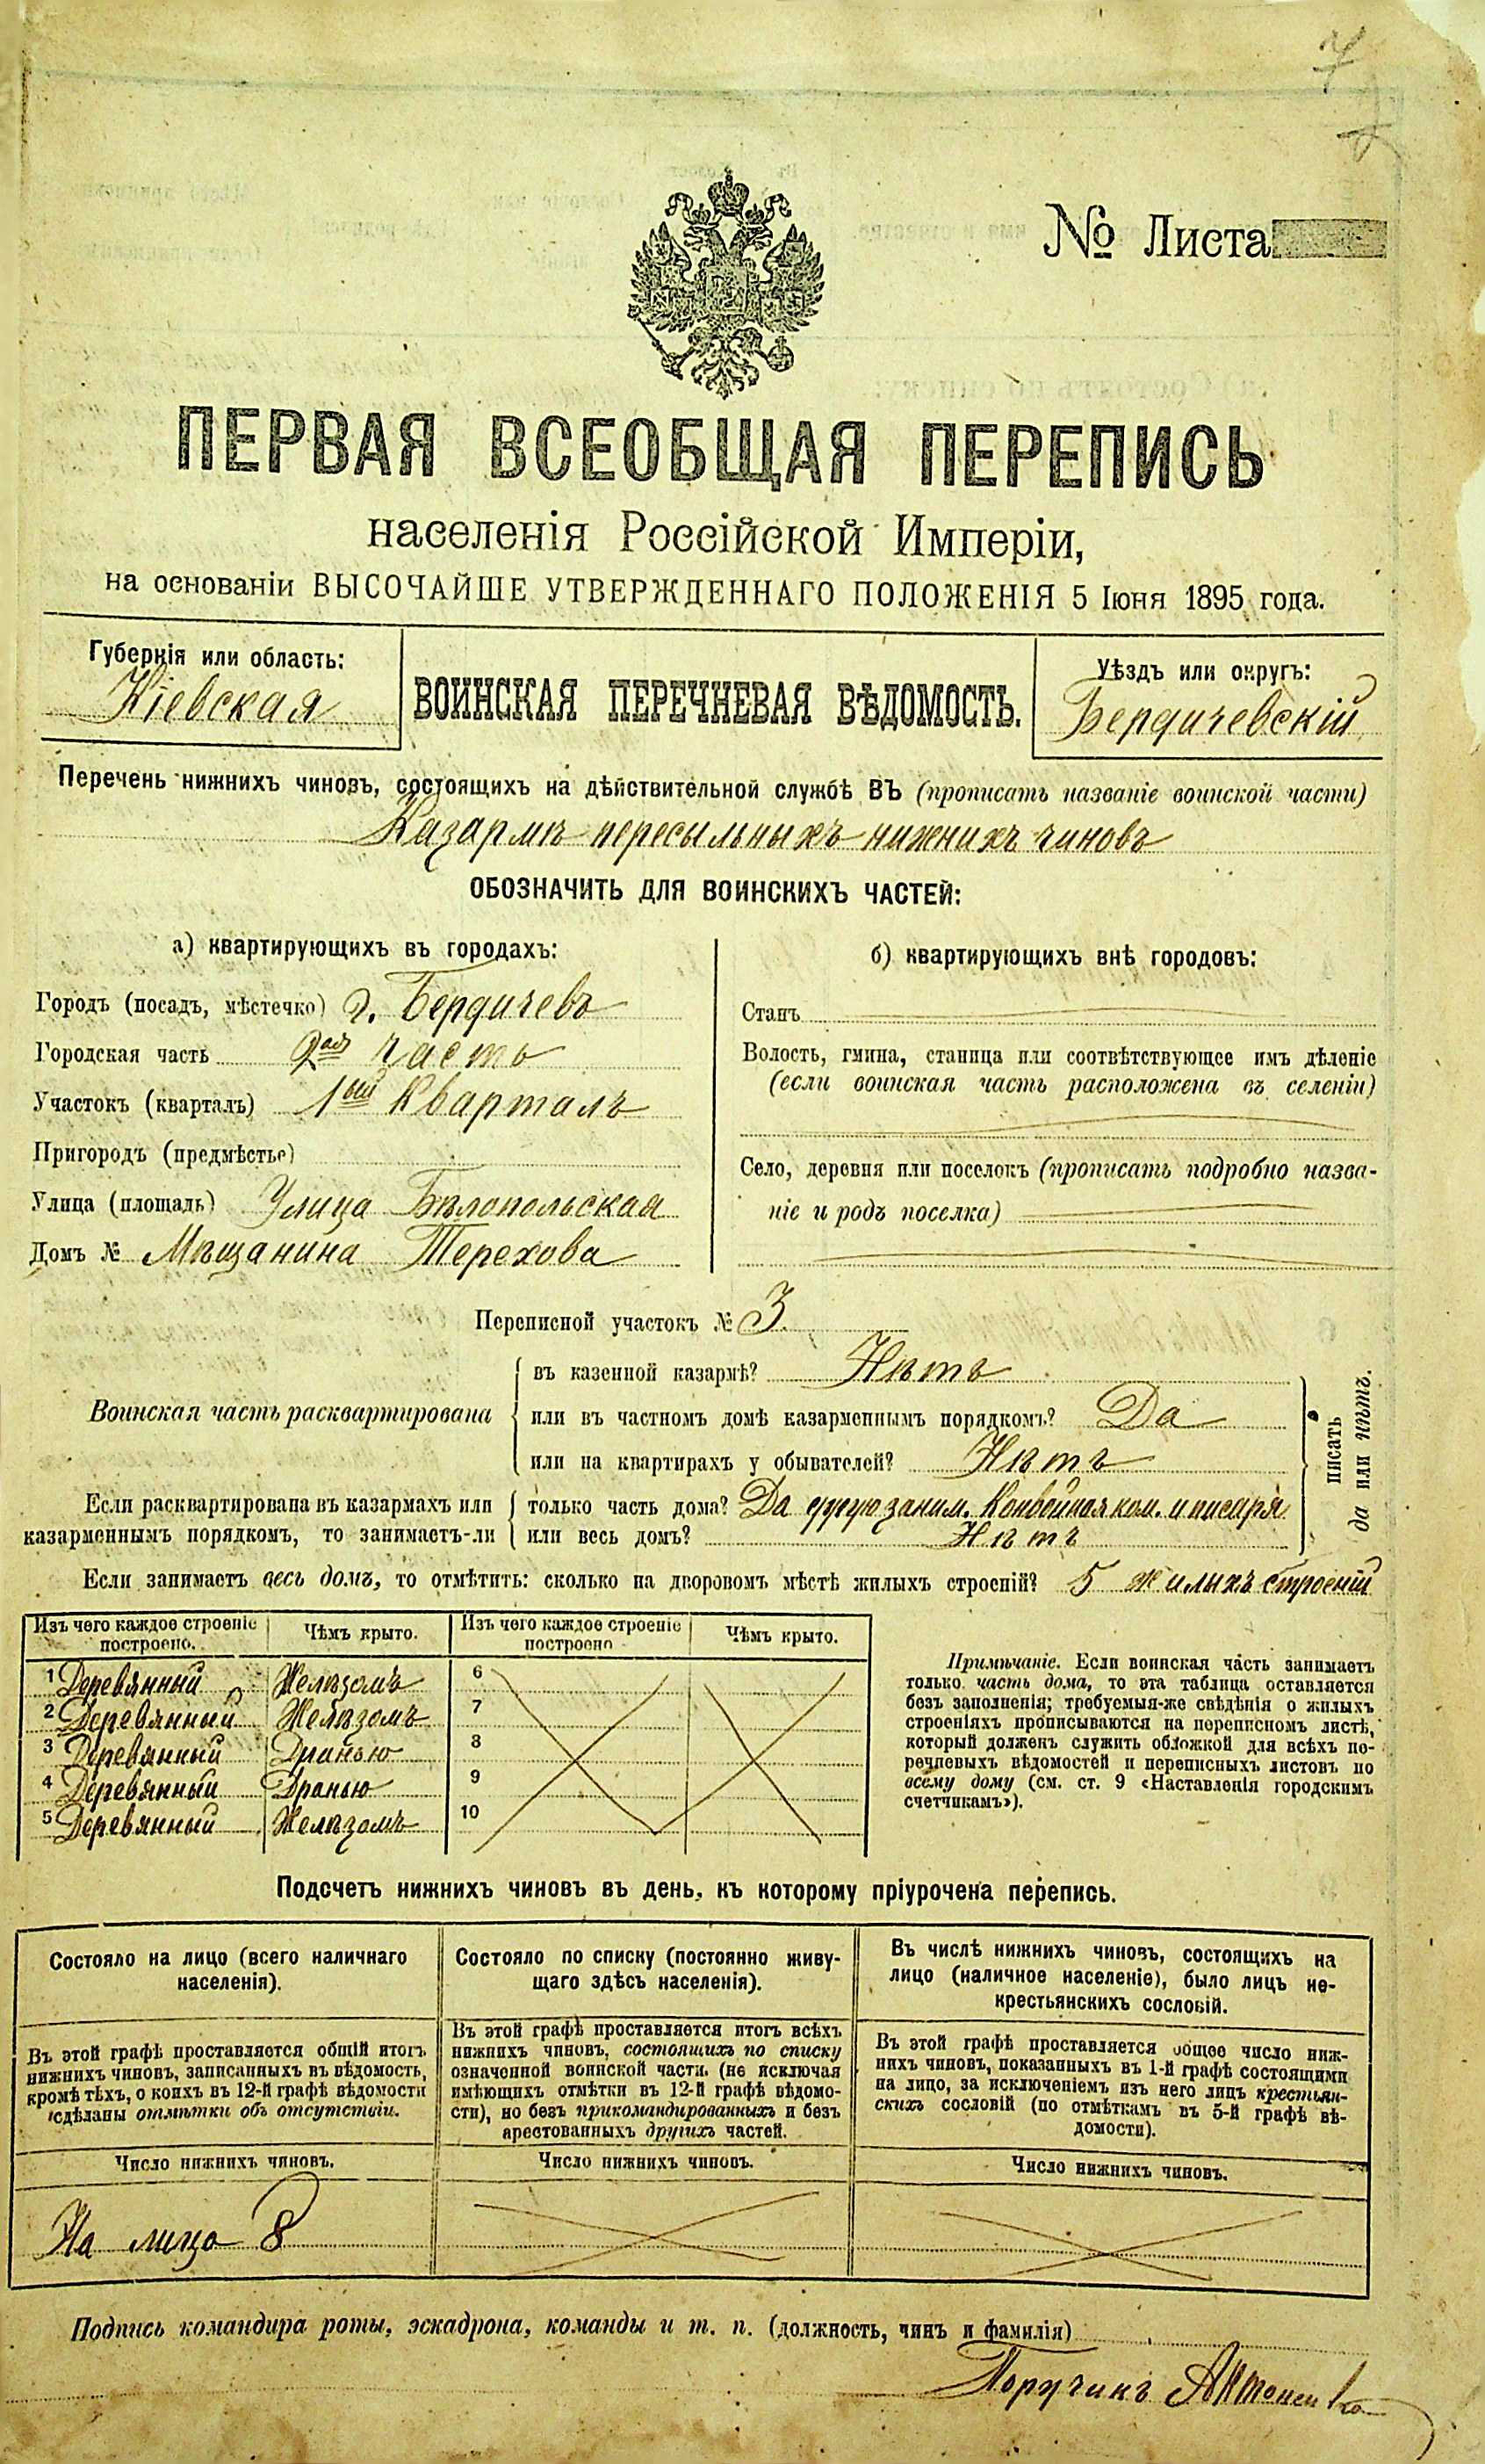 7
№ Листа
ПЕРВАЯ ВСЕОБЩАЯ ПЕРЕПИСЬ
населенія Россійской Имперіи,
на основаніи ВЫСОЧАЙШЕ УТВЕРЖДЕННАГО ПОЛОЖЕНІЯ 5 Іюня 1895 года.
Губернія или область:
Кіевская
ВОИНСКАЯ ПЕРЕЧНЕВАЯ ВѢДОМОСТЬ.
Уѣздъ или округъ:
Бердичевскій
Перечень нижнихъ чиновъ, состоящихъ на дѣйствительной службѣ ВЪ (прописать названіе воинской части)
Казармѣ пересыльныхъ нижнихъ чиновъ
ОБОЗНАЧИТЬ ДЛЯ ВОИНСКИХЪ ЧАСТЕЙ:
а) квартирующихъ въ городахъ:
Городъ (посадъ, мѣстечко) г. Бердичевъ
Городская часть 2ая часть
Участокъ (кварталъ) 1ый Кварталъ
Пригородъ (предмѣстье)
Улица (площадь) Улица Бѣлопольская
Домъ № Мѣщанина Терехова
б) квартирующихъ внѣ городовъ:
Станъ
Волость, гмина, станица или соотвѣтствующее имъ дѣленіе
(если воинская часть расположена въ селеніи)
Село, деревня или поселокъ (прописать подробно назва-
ніе и родъ поселка)
Переписной участокъ № 3.
Воинская часть расквартирована
въ казенной казармѣ? Нѣтъ
или въ частномъ домѣ казарменнымъ порядкомъ? Да
или на квартирахъ у обывателей? Нѣтъ
Если расквартирована въ казармахъ или
казарменнымъ порядкомъ, то занимаетъ-ли
только часть дома? Да другую заним. Конвойная ком. и писаря
или весь домъ? Нѣтъ
писать
да или нѣтъ.
Если занимаетъ весь домъ, то отмѣтить: сколько на дворовомъ мѣстѣ жилыхъ строеній? 5 жилыхъ строеній
Изъ чего каждое строеніе построено. Чѣмъ крыто. Изъ чего каждое строеніе построено Чѣмъ крыто.
1 Деревянный Желѣзомъ 6
2 Деревянный Желѣзомъ 7
3 Деревянный Дранью 8
4 Деревянный Дранью 9
5 Деревянный Желѣзомъ 10
Примѣчаніе. Если воинская часть занимаетъ
только часть дома, то эта таблица оставляется
безъ заполненія; требуемыя-же свѣдѣнія о жилыхъ
строеніяхъ прописываются на переписномъ листѣ,
который долженъ служить обложкой для всѣхъ пе-
речневыхъ вѣдомостей и переписныхъ листовъ по
всему дому (см. ст. 9 «Наставленія городскимъ
счетчикамъ»).
Подсчетъ нижнихъ чиновъ въ день, къ которому пріурочена перепись.
Состояло на лицо (всего наличнаго
населенія).
Въ этой графѣ проставляется общій итогъ
нижнихъ чиновъ, записанныхъ въ вѣдомость,
кромѣ тѣхъ, о коихъ въ 12-й графѣ вѣдомости
сдѣланы отмѣтки объ отсутствіи.
Число нижнихъ чиновъ.
На лицо 8
Состояло по списку (постоянно живу-
щаго здѣсь населенія).
Въ этой графѣ проставляется итогъ всѣхъ
нижнихъ чиновъ, состоящихъ по списку
означенной воинской части (не исключая
имѣющихъ отмѣтки въ 12-й графѣ вѣдомо-
сти), но безъ прикомандированныхъ и безъ
арестованныхъ другихъ частей.
Число нижнихъ чиновъ.
Въ числѣ нижнихъ чиновъ, состоящихъ на
лицо (наличное населеніе), было лицъ не-
крестьянскихъ сословій.
Въ этой графѣ проставляется общее число ниж-
нихъ чиновъ, показанныхъ въ 1-й графѣ состоящими
на лицо, за исключеніемъ изъ него лицъ крестьян-
скихъ сословій (по отмѣткамъ въ 5-й графѣ вѣ-
домости).
Число нижнихъ чиновъ.
Подпись командира роты, эскадрона, команды и т. п. (должность, чинъ и фамилія)
Поручикъ Антоненко